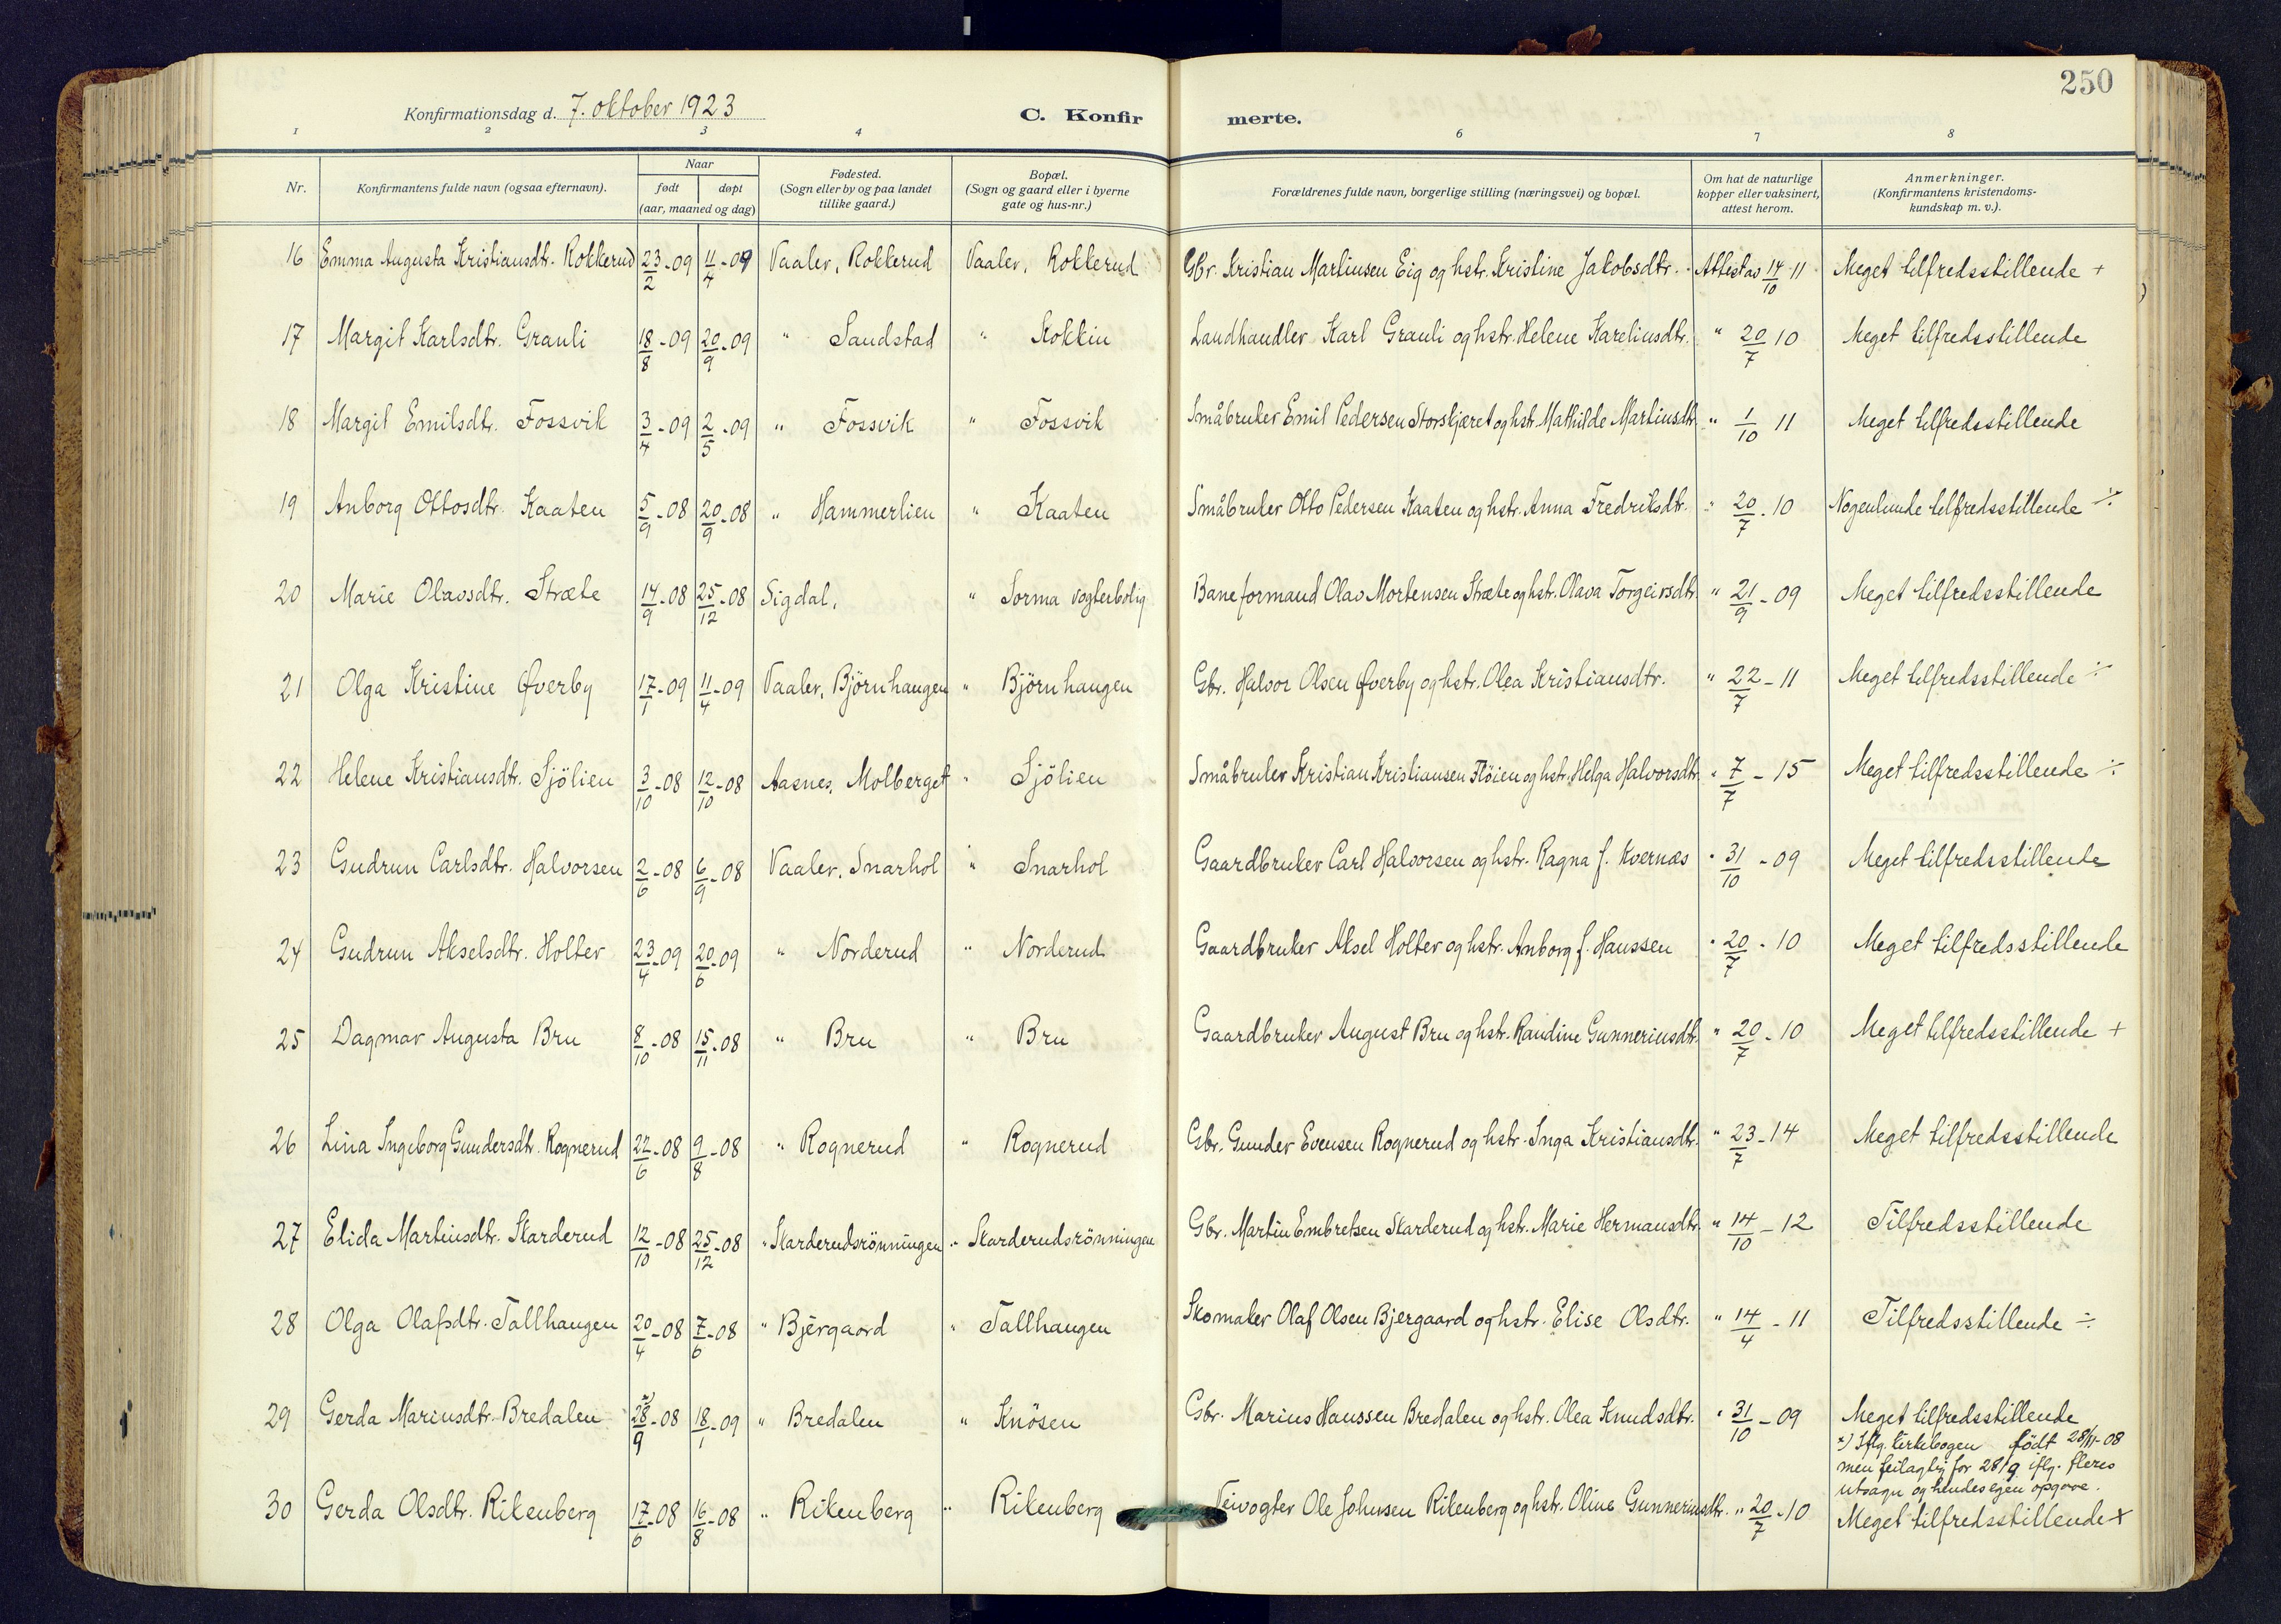 250
Konfirmationsdag d. 7. oktober 1923
C. Konfirmerte.
1 2 3 4 6 7 8
Nr.
Konfirmantens fulde navn (ogsaa efternavn).
Naar
født
døpt
(aar, maaned og dag)
Fødested.
(Sogn eller by og paa landet
tillike gaard.)
Bopæl.
(Sogn og gaard eller i byerne
gate og hus-nr.)
Forældrenes fulde navn, borgerlige stilling (næringsvei) og bopæl.
Om hat de naturlige
kopper eller vaksinert,
attest herom.
Anmerkninger.
(Konfirmantens kristendoms-
kundskap m. v.).
16 Emma Augusta Kristiansdtr. Rokkerud 23/2-09 11/4-09 Vaaler, Rokkerud Vaaler, Rokkerud Gbr. Kristian Martinsen Eig og hstr. Kristine Jakobsdtr. Attest av 14/10 11 Meget tilfredsstillende +
17 Margit Karlsdtr. Granli 18/8-09 20/9-09 " Sandstad " Kokkin Landhandler Karl Granli og hstr. Helene Kareliusdtr. " 20/7 10 Meget tilfredsstillende
18 Margit Emilsdtr. Fossvik 3/4-09 2/5-09 " Fossvik " Fossvik Småbruker Emil Pedersen Storskjæret og hstr. Mathilde Martinsdtr. " 1/10 11 Meget tilfredsstillende
19 Anborg Ottosdtr. Kaaten 5/9-08 20/9-08 " Hammerlien " Kaaten Småbruker Otto Pedersen Kaaten og hstr. Anna Fredriksdtr. " 20/7-10 Nogenlunde tilfredsstillende ÷
20 Marie Olavsdtr. Stræte 14/9-08 25/12-08 Sigdal, " Sorma vogterbolig Baneformand Olav Mortensen Stræte og hstr. Olava Torgeirsdtr. " 21/9-09 Meget tilfredsstillende
21 Olga Kristine Øverby 17/1-09 11/4-09 Vaaler, Björnhaugen " Björnhaugen Gbr. Halvor Olsen Øverby og hstr. Olea Kristiansdtr. " 22/7-11 Meget tilfredsstillende ÷
22 Helene Kristiansdtr. Sjölien 3/10-08 12/10-08 Aasnes, Molberget " Sjölien Småbruker Kristian Kristiansen Flöien og hstr. Helga Halvorsdtr. " 7/7-15 Meget tilfredsstillende ÷
23 Gudrun Carlsdtr. Halvorsen 2/6-08 6/9-08 Vaaler, Snarhol " Snarhol Gaardbruker Carl Halvorsen og hstr. Ragna f. Kvernæs " 31/10-09 Meget tilfredsstillende
24 Gudrun Akselsdtr. Holter 23/4-09 20/6-09 " Norderud " Norderud Gaardbruker Aksel Holter og hstr. Anborg f. Hanssen " 20/7-10 Meget tilfredsstillende
25 Dagmar Augusta Bru 8/10-08 15/11-08 " Bru " Bru Gaardbruker August Bru og hstr. Randine Gunneriusdtr. " 20/7-10 Meget tilfredsstillende +
26 Lina Ingeborg Gundersdtr. Rognerud 22/6-08 9/8-08 " Rognerud " Rognerud Gbr. Gunder Evensen Rognerud og hstr. Inga Kristiansdtr. " 23/7-14 Meget tilfredsstillende
27 Elida Martinsdtr. Skarderud 12/10-08 25/12-08 " Skarderudsrönningen " Skarderudsrönningen Gbr. Martin Embretsen Skarderud og hstr. Marie Hermansdtr. " 14/10-12 Tilfredsstillende
28 Olga Olafsdtr. Tallhaugen 20/4-08 7/6-08 " Bjergaard " Tallhaugen Skomaker Olaf Olsen Bjergaard og hstr. Elise Olsdtr. " 14/4-11 Tilfredsstillende ÷
29 Gerda Mariusdtr. Bredalen x) 28/9-08 18/1-09 " Bredalen " Knösen Gbr. Marius Hanssen Bredalen og hstr. Olea Knudsdtr. " 31/10-09 Meget tilfredsstillende
x) Iflg. kirkebogen født 28/11-08
men feilagtig for 28/9 iflg. fleres
utsagn og hendes egen opgave.
30 Gerda Olsdtr. Rikenberg 17/6-08 16/8-08 " Rikenberg " Rikenberg Veivogter Ole Johnsen Rikenberg og hstr. Oline Gunneriusdtr. " 20/7-10 Meget tilfredsstillende +